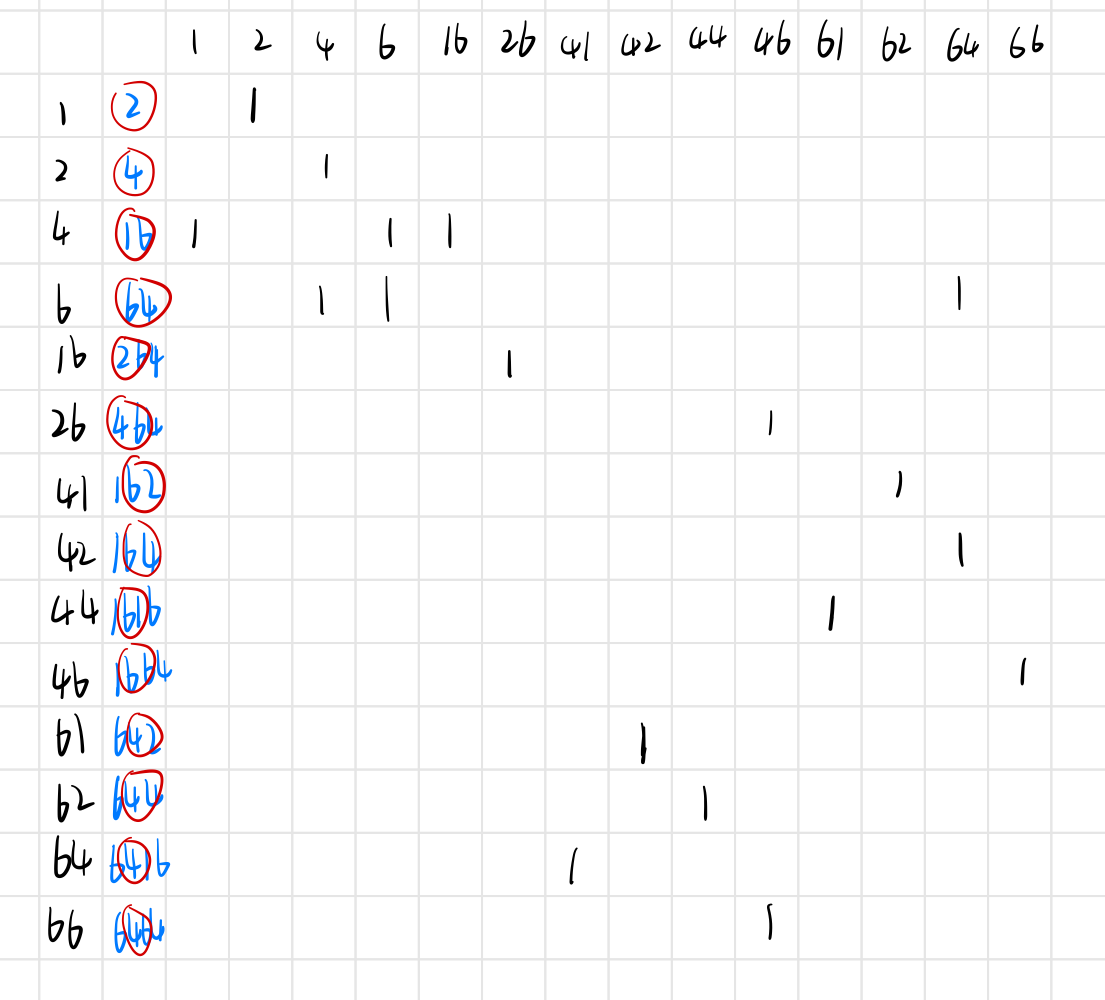 1 2 4 6 16 26 41 42 44 46 61 62 64 66
1 2 1
2 4 1
4 16 1 1 1
6 64 1 1 1
16 264 1
26 464 1
41 162 1
42 164 1
44 1616 1
46 1664 1
61 642 1
62 644 1
64 6416 1
66 6464 1